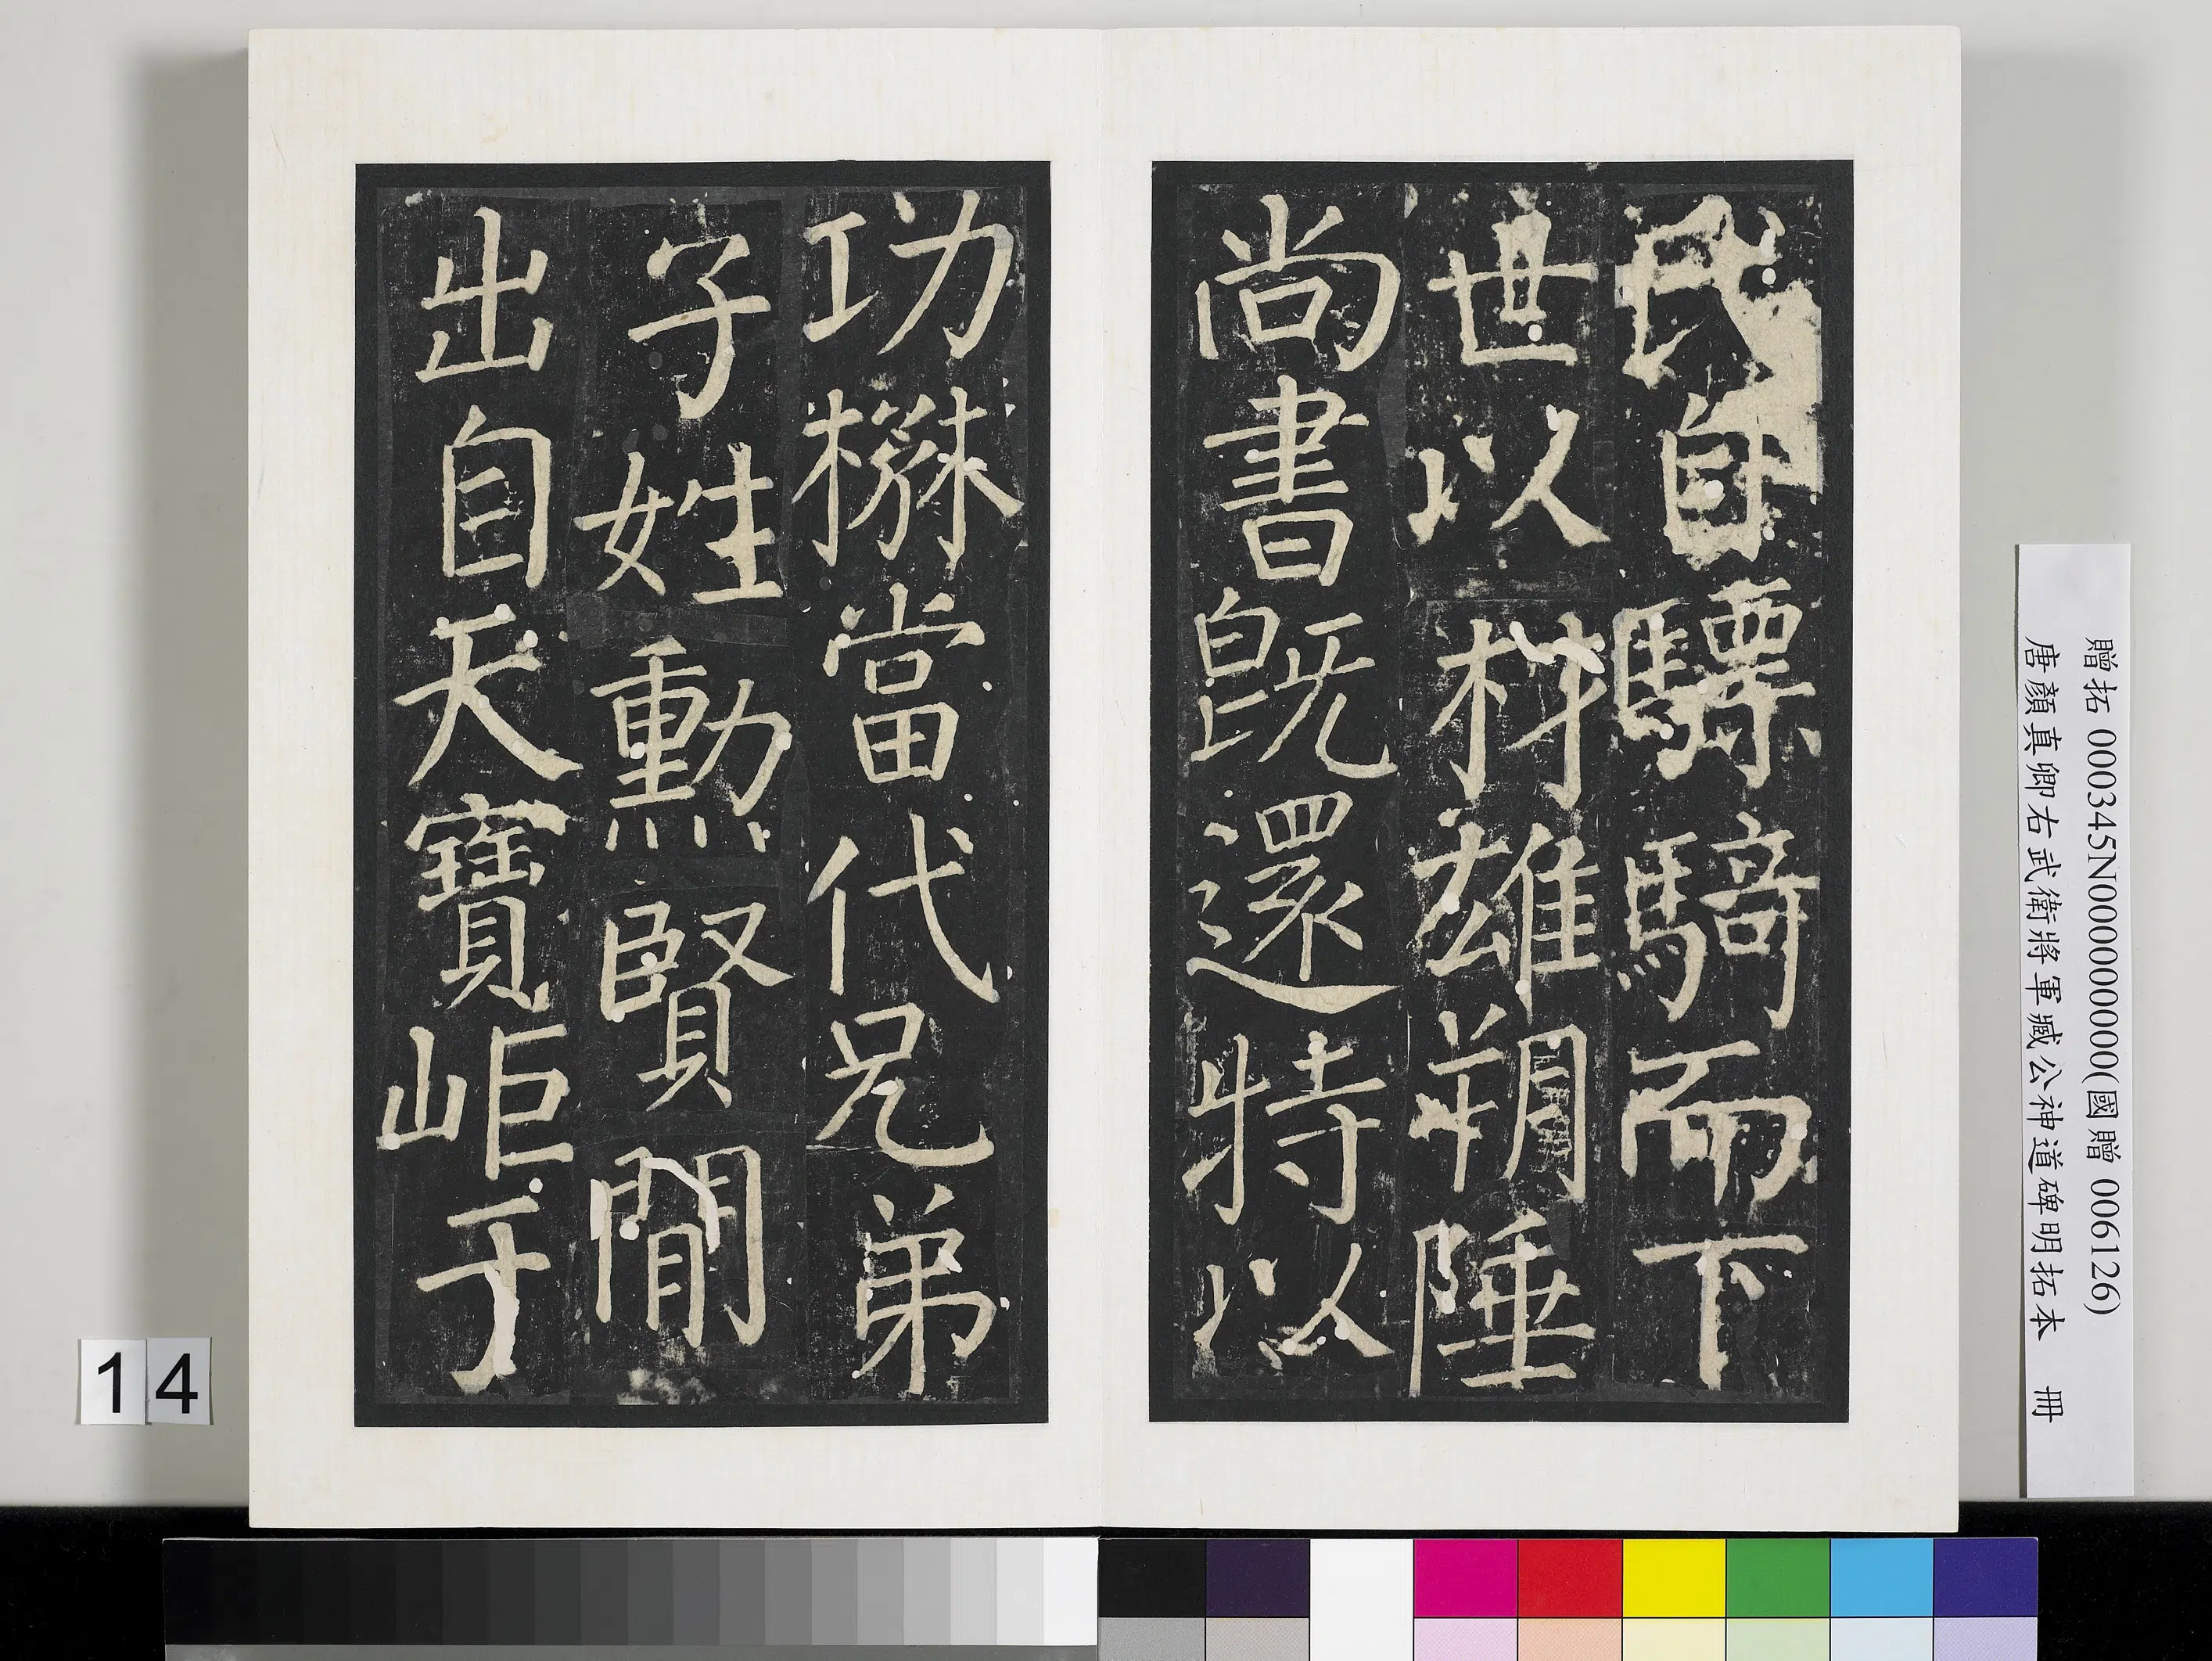 氏自驃騎而下
世以材雄朔陲
尚書既還特以
功㯟當代兄弟
子姓勳賢間
出自天寶岠于
贈拓 000345N000000000(國贈 006126)
唐顏真卿右武衛將軍臧公神道碑明拓本 冊
14